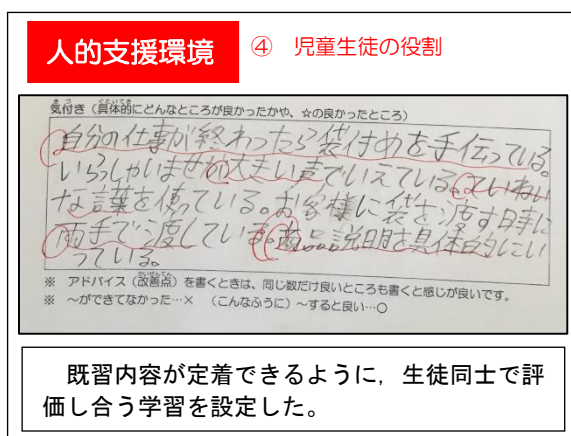 人的支援環境
④ 児童生徒の役割
気付き(具体的にどんなところが良かったかや、☆の良かったところ)
自分の仕事が終わったら袋付めを手伝っている。
いらっしゃいませが大きい声でいえている。ていねい
な言葉を使っている。お客様に袋を渡す時に
両手で渡している。商品説明を具体的にい
っている。
※ アドバイス(改善点)を書くときは、同じ数だけ良いところも書くと感じが良いです。
※ ~ができてなかった…× (こんなふうに)~すると良い…○
既習内容が定着できるように,生徒同士で評
価し合う学習を設定した。